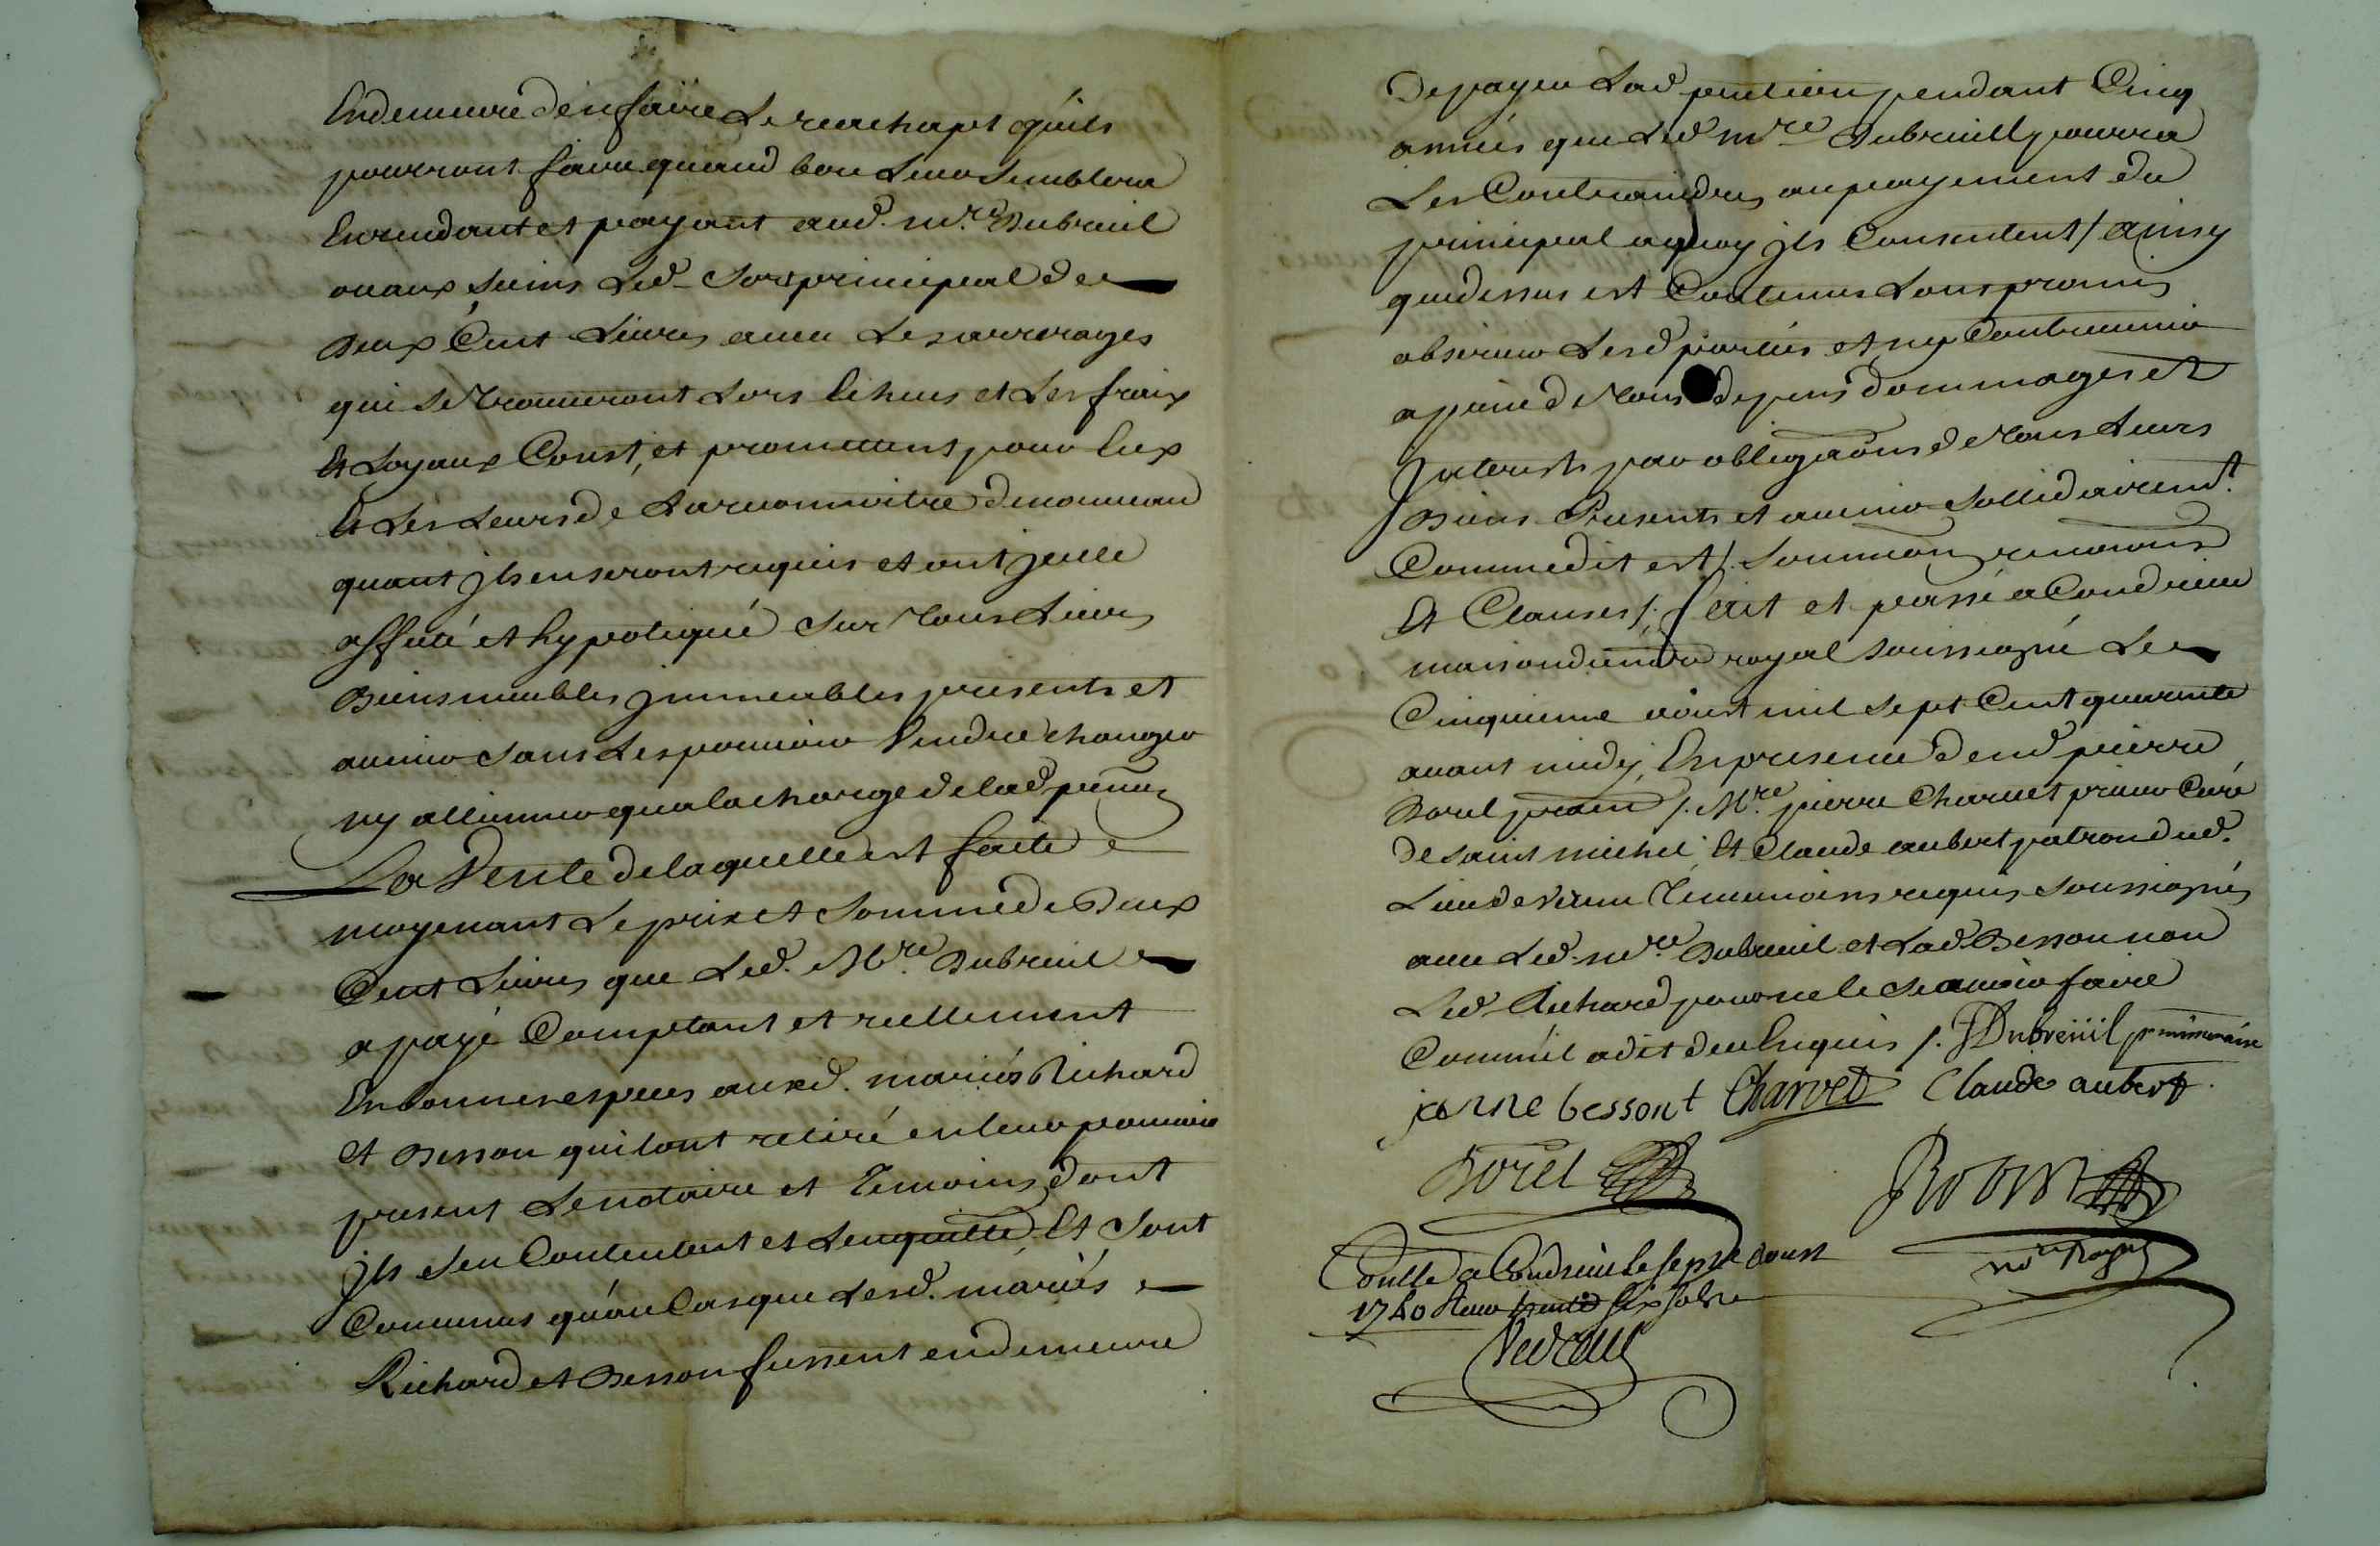 En demeure d'en faire Le reachapt qu'ils
pourront faire quand bon Leur Semblera
En rendant et payant aud. mre. Dubreuil
ou aux Siens Led. Sort principal de
Deux Cent Livres avec Les arrerages
qui Se trouveront Lors Echeus et Les fraix
Et Loyaux Coust, et promettent pour Eux
Et Les Leurs de La reconnoitre de nouveau
quant jls en seront requis et ont jcelle
affecté et hypotequé Sur tous Leurs
Biens meubles jmmeubles presents et
avenir Sans Les pouvoir Vendre changer
ny allienner qu'a la charge de lad. penõn
La Vente de laquelle est faite
moyenant Le prix et Somme de Deux
Cent Livres que Led. Mre. Dubreuil
a payé Comptant et reellement
En bonnes especes auxd. mariés Richard
et Besson qui l'ont retiré en leur pouvoir
present Le notaire et Temoins, dont
jls S'en Contentent et L'en quitte, Et Sont
Convenus qu'au Cas que Lesd. mariés
Richard et Besson fussent en demeure
De payer Lad. pention pendant Cinq
années que Led. mre Dubreuil pourra
Les Contraindre au payement du
principal a quoy jls Consentent / ainsy
que dessus est Contenus L'ont promis
observer Lesd. parties et n'y Contrevenir
a peine de tous depens dommages et
Interests par obligaõns de tous Leurs
Biens Presents et avenir Sollidairemt.
Comme dit est /. Soumiõns renonõns
Et Clauses /. fait et passé a Condrieu
maison du nore royal soussigné Le
Cinquieme aoust mil Sept Cent quarente
avant midy, En presence de md. pierre
Borel praen /. Mre. pierre Charvet prieur Curé
de Saint michel, Et Claude aubert patron dud.
Lieu de Temmoins requis Soussignés
avec Led. mre. Dubreuil et Lad. Besson non
Led. Richard pour ne le Sçavoir faire
Comm'il a dit de ce Enquis /. JDubreüil
janne besson + Charvet Claude aubert.
Borel
Robin
nore Royal
Conllé a Condrieu Le sept aoust
1740 Reçu trente six sols